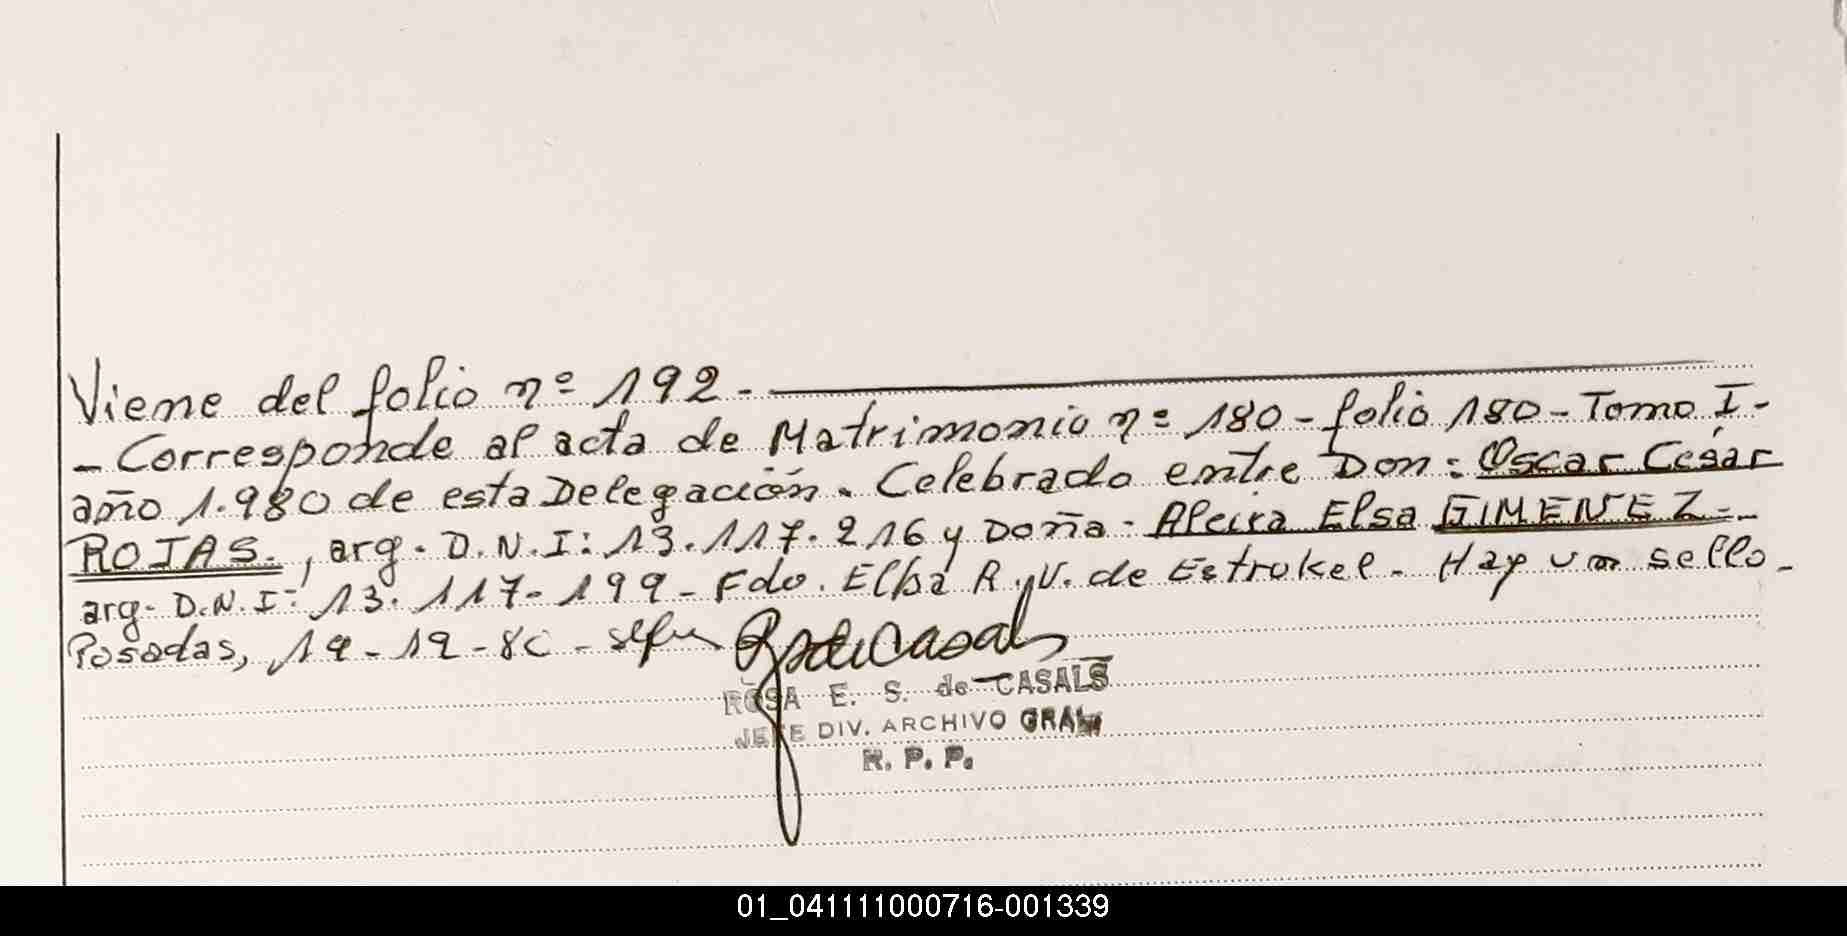 Viene del folio nº 192.-
- Corresponde al acta de Matrimonio nº 180 - folio 180 - Tomo I -
año 1.980 de esta Delegación. Celebrado entre Don: Oscar César
ROJAS., arg. D.N.I: 13.117.216 y Doña: Alcira Elsa GIMENEZ.-
arg. D.N.I: 13.117.199 - Fdo. Elba R. V. de Estrukel. Hay un sello.
Posadas,
ROSA E. S. de CASALS
JEFE DIV. ARCHIVO GRAL
R. P. P.
01_041111000716-001339